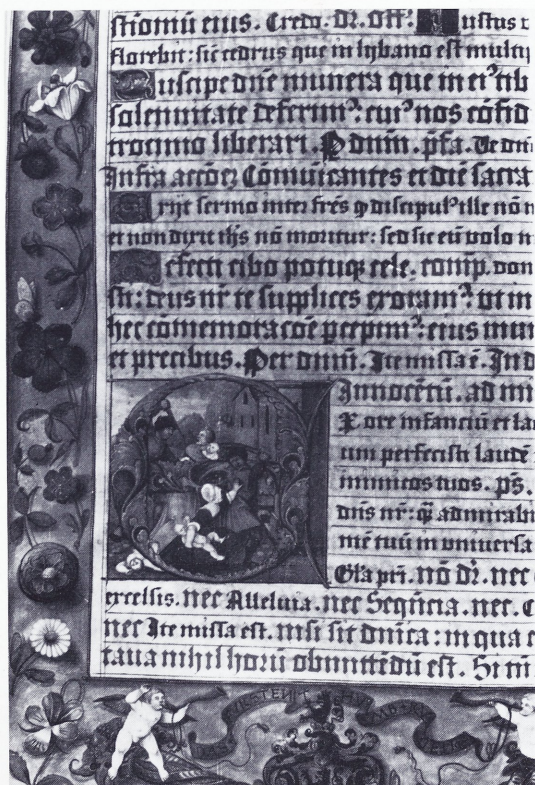 stiomū eius. Credo. dr̄. Off̄: Iustus
florebit: sic cedrus que in lybano est multi
Suscipe dn̄e munera que in ei⁹ tib
solennitate deferim⁹: cui⁹ nos cōfid
trocinio liberari. P dnm̄. p̄fa.
Infra acc̄oeʒ Cōmuīcantes et diē sacra
Exijt sermo inter fr̄es ꝙ discipul⁹ ille nō
et non dixit ih̄s nō moritur: sed sic eū volo
Refecti cibo potuqꝫ cele. com̄p. don
sti: deus nr̄ te supplices exoram⁹: ut in
hec cōmemoracōe p̄cepim⁹: eius mun
et precibus. Per dnm̄. Ite missa ē. In d
Innocētū. ad mi
Ex ore infanciū et lac
ium perfecisti laudē
inimicos tuos. p̄s.
dn̄s nr̄: q̄ admirabi
mē tuū in vniuersa
Gl̄a pr̄i. nō dr̄. nec
excelsis. nec Alleluia. nec Seqn̄cia. nec. C
nec Ite missa est. nisi sit dn̄ica: in qua e
taua nihil horū obmittēdū est. Si